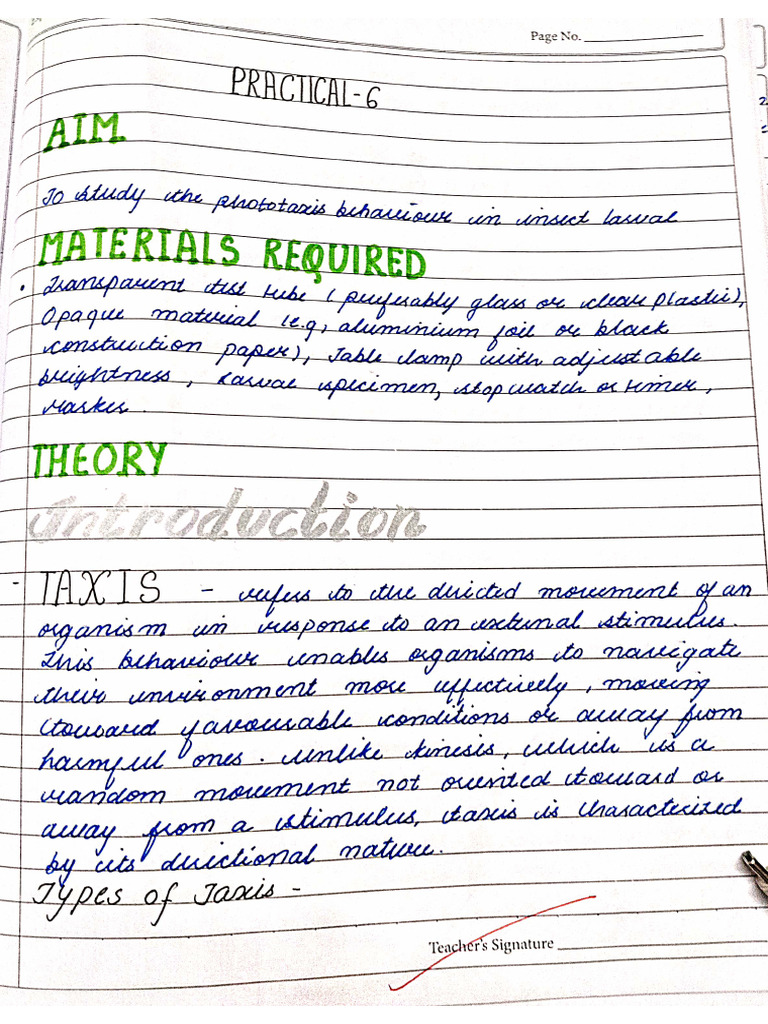 Page No.
PRACTICAL-6
AIM
To study the phototaxis behaviour in insect larvae
MATERIALS REQUIRED
• Transparent test tube (preferably glass or clear plastic),
Opaque material (e.g, aluminium foil or black
construction paper), Table lamp with adjustable
brightness, Larvae specimen, stopwatch or timer,
Marker.
THEORY
Introduction
- TAXIS - refers to the directed movement of an
organism in response to an external stimulus.
This behaviour enables organisms to navigate
their environment more effectively, moving
toward favourable conditions or away from
harmful ones. Unlike kinesis, which is a
random movement not oriented toward or
away from a stimulus, taxis is characterized
by its directional nature.
Types of Taxis -
Teacher's Signature